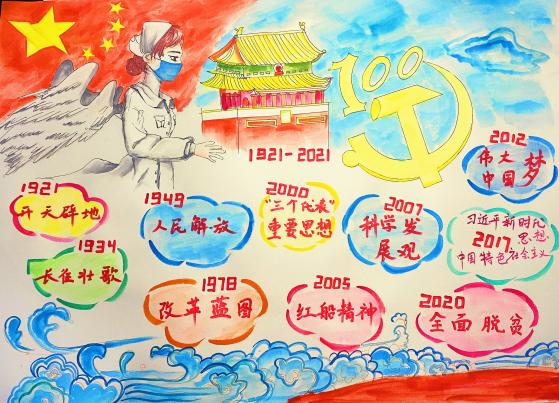 100
1921-2021
1921
开天辟地
1934
长征壮歌
1949
人民解放
1978
改革蓝图
2000
“三个代表”
重要思想
2005
红船精神
2007
科学发
展观
2012
伟大
中国梦
习近平新时代
思想
2017
中国特色社会主义
2020
全面脱贫